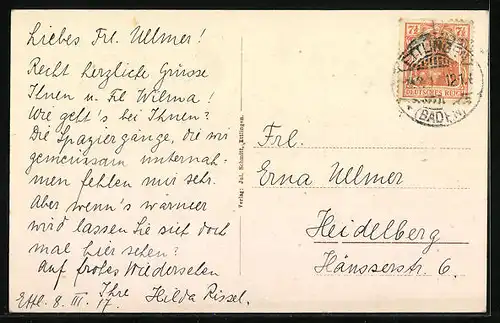 Liebes Frl. Ullmer!
Recht herzliche Grüsse
Ihnen u. Frl Wilma!
Wie geht's bei Ihnen?
Die Spaziergänge, die wir
gemeinsam unternah-
men fehlen mir sehr.
Aber wenn's wärmer
wird lassen Sie sich doch
mal hier sehen?
Auf frohes Wiedersehen
Ihre
Ettl. 8. III. 17. Hilda Rissel.
Verlag: Jul. Schmitt, Ettlingen.
7½ 7½
DEUTSCHES REICH
ETTLINGEN
(BADEN)
Frl.
Erna Ullmer
Heidelberg
Häusserstr. 6.